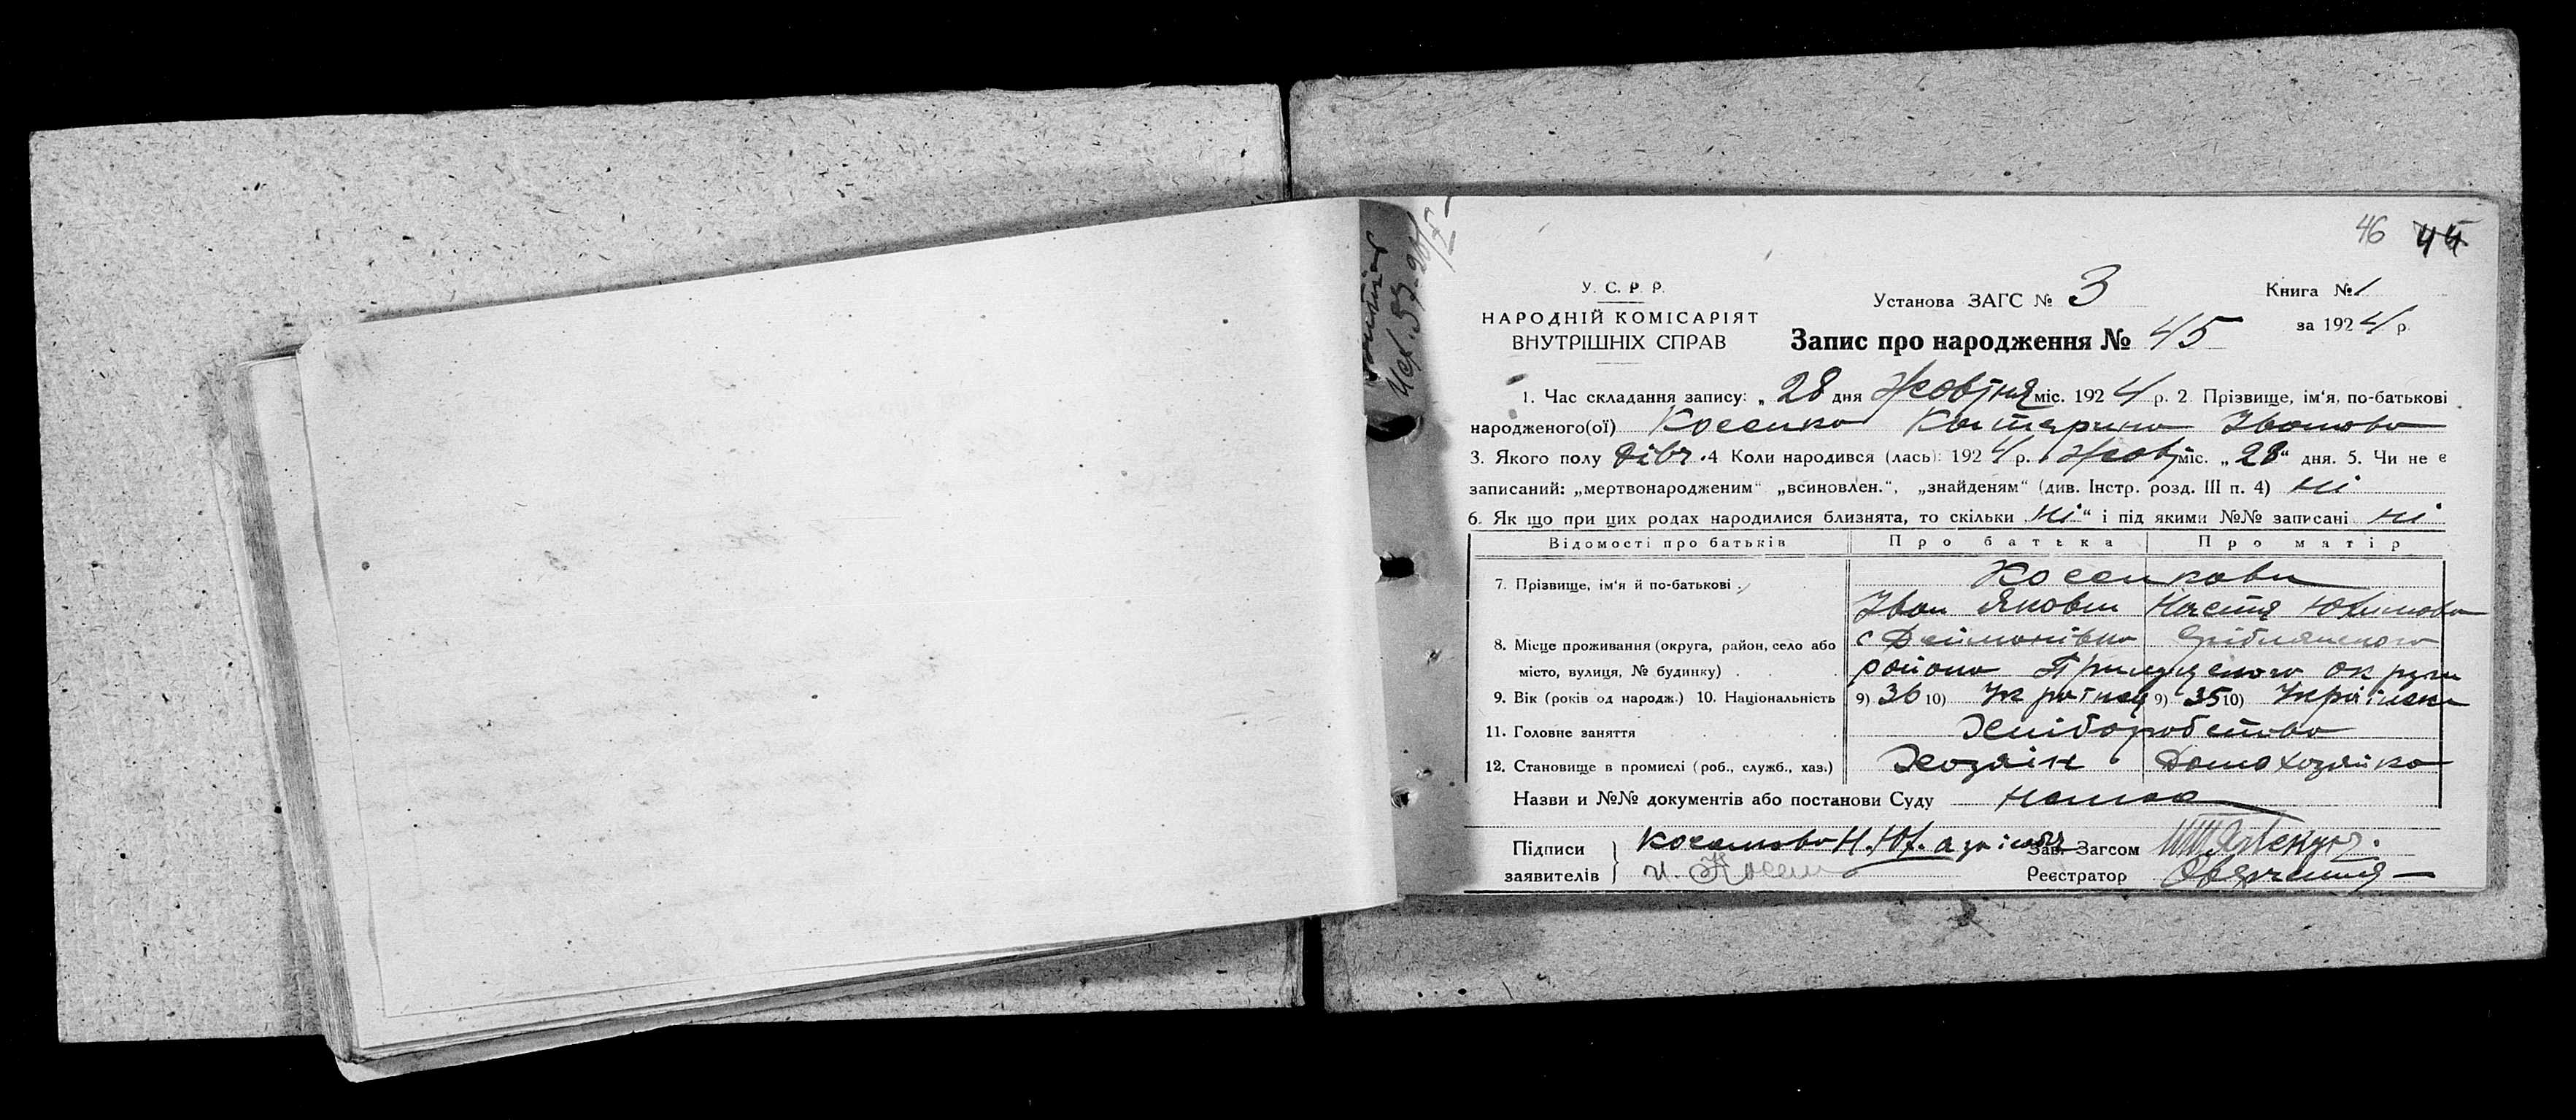 46 44
У. С. Р. Р.
НАРОДНІЙ КОМІСАРІЯТ
ВНУТРІШНІХ СПРАВ
Установа ЗАГС № 3
Книга № 1
Запис про народження № 45
за 1924 р.
1. Час складання запису: „28 дня Жовтня міс. 1924 р. 2. Прізвище, ім'я, по-батькові
народженого(ої) Косенко Катерина Іванова
3. Якого полу дівч. 4 Коли народився (лась): 1924 р. Жовт міс. „28“ дня. 5. Чи не є
записаний: „мертвонародженим“ „всиновлен.“, „знайденям“ (див. Інстр. розд. III п. 4) ні
6. Як що при цих родах народилися близнята, то скільки „ні“ і під якими №№ записані ні
Відомості про батьків Про батька Про матір
7. Прізвище, ім'я й по-батькові
Іван Якови Настя Юхимова
8. Місце проживання (округа, район, село або с Дейманівка Срібнянського
місто, вулиця, № будинку) району Прилуцького округи
9. Вік (років од народж.) 10. Національність 9) 36 10) Українец 9) 35 10) Українка
11. Головне заняття Хліборобство
12. Становище в промислі (роб., служб., хаз.) Хозяін Домохозяйка
Назви и №№ документів або постанови Суду Немає
Підписи
заявителів
Н. Юх.
Зав. Загсом
И. Косен
Реєстратор